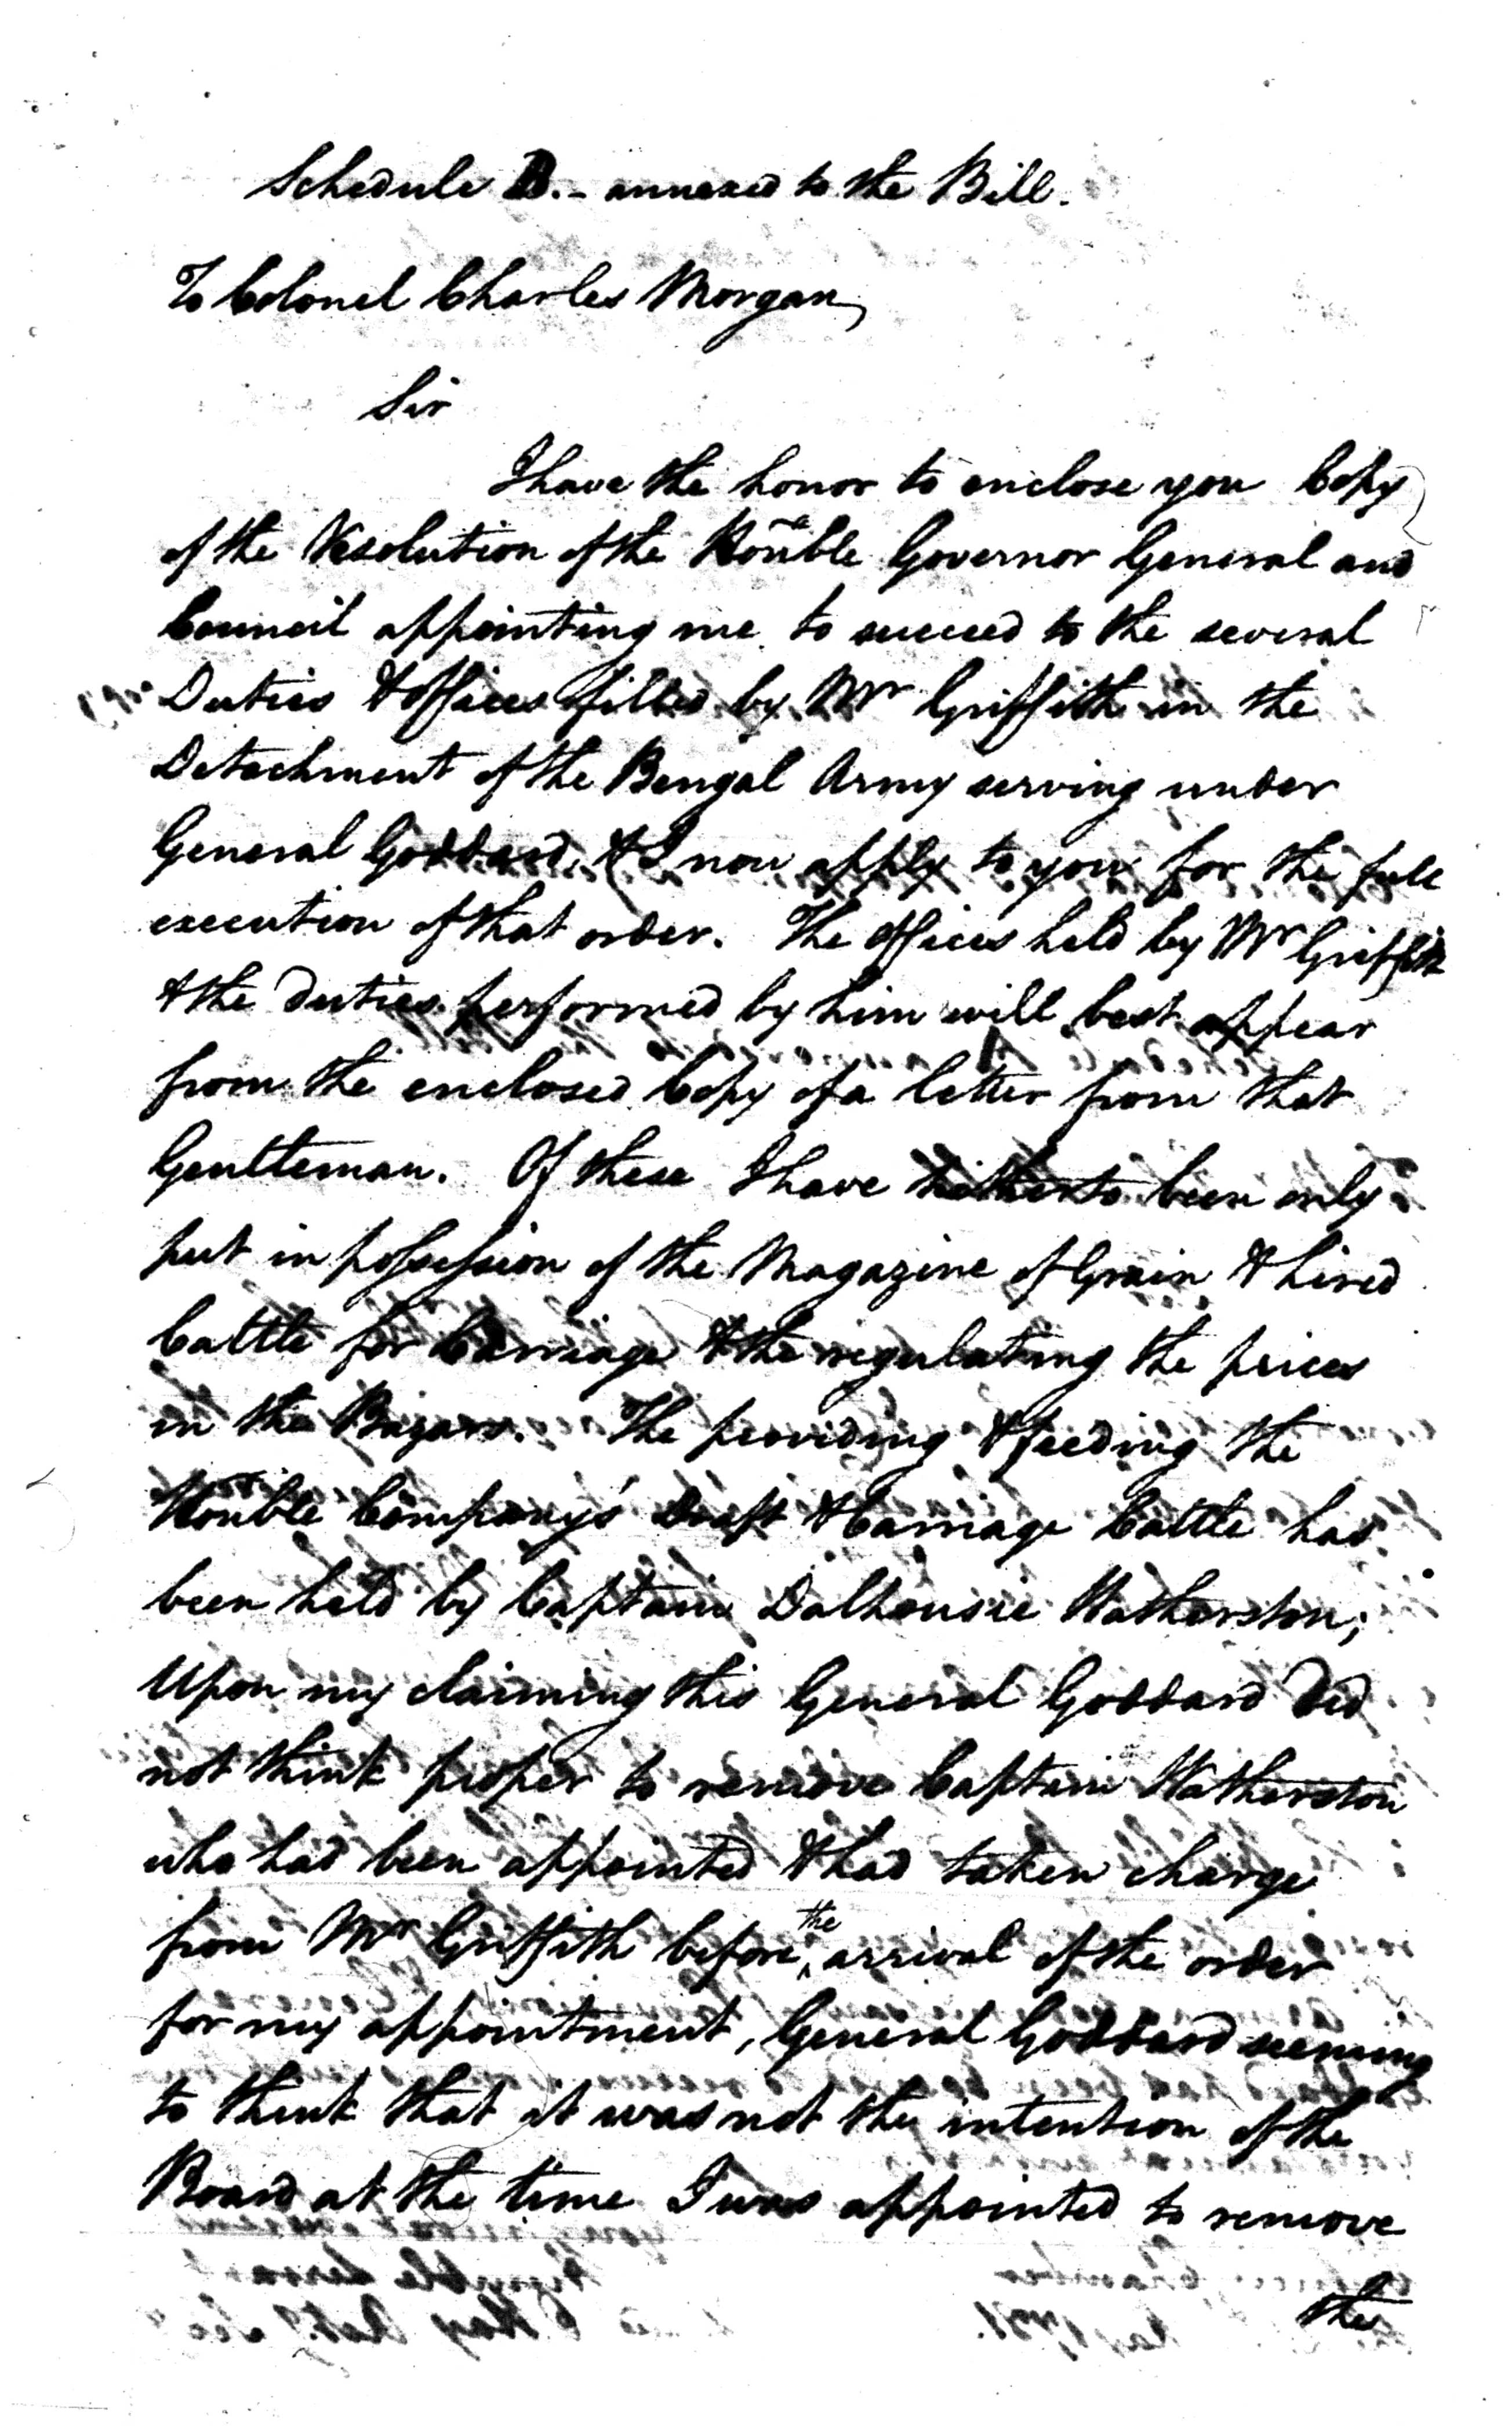 Schedule B. - annexed to the Bill.
To Colonel Charles Morgan,
Sir
I have the honor to enclose you Copy
of the Resolution of the Honble Governor General and
Council appointing me to succeed to the several
Duties & offices filled by Mr Griffith in the
Detachment of the Bengal Army serving under
General Goddard, & I now apply to you for the full
execution of that order. The offices held by Mr Griffith
& the duties performed by him will best appear
from the enclosed Copy of a letter from that
Gentleman. Of these I have hitherto been only
put in possession of the Magazine of Grain & hired
Cattle for Carriage & the regulating the prices
in the Bazars. The providing & feeding the
Honble Company's Draft & Carriage Cattle has
been held by Captain Dalhousie Watherston;
Upon my claiming this General Goddard did
not think proper to remove Captain Watherston
who had been appointed & had taken charge
from Mr Griffith before the arrival of the order
for my appointment, General Goddard seeming
to think that it was not the intention of the
Board at the time I was appointed to remove
the